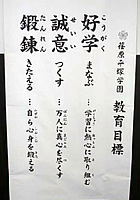 荏原平塚学園
教育目標
好学 まなぶ …学習に熱心に取り組む
こうがく
誠意 つくす …万人に真心を尽くす
せいい
鍛錬 きたえる …自ら心身を鍛える
たんれん